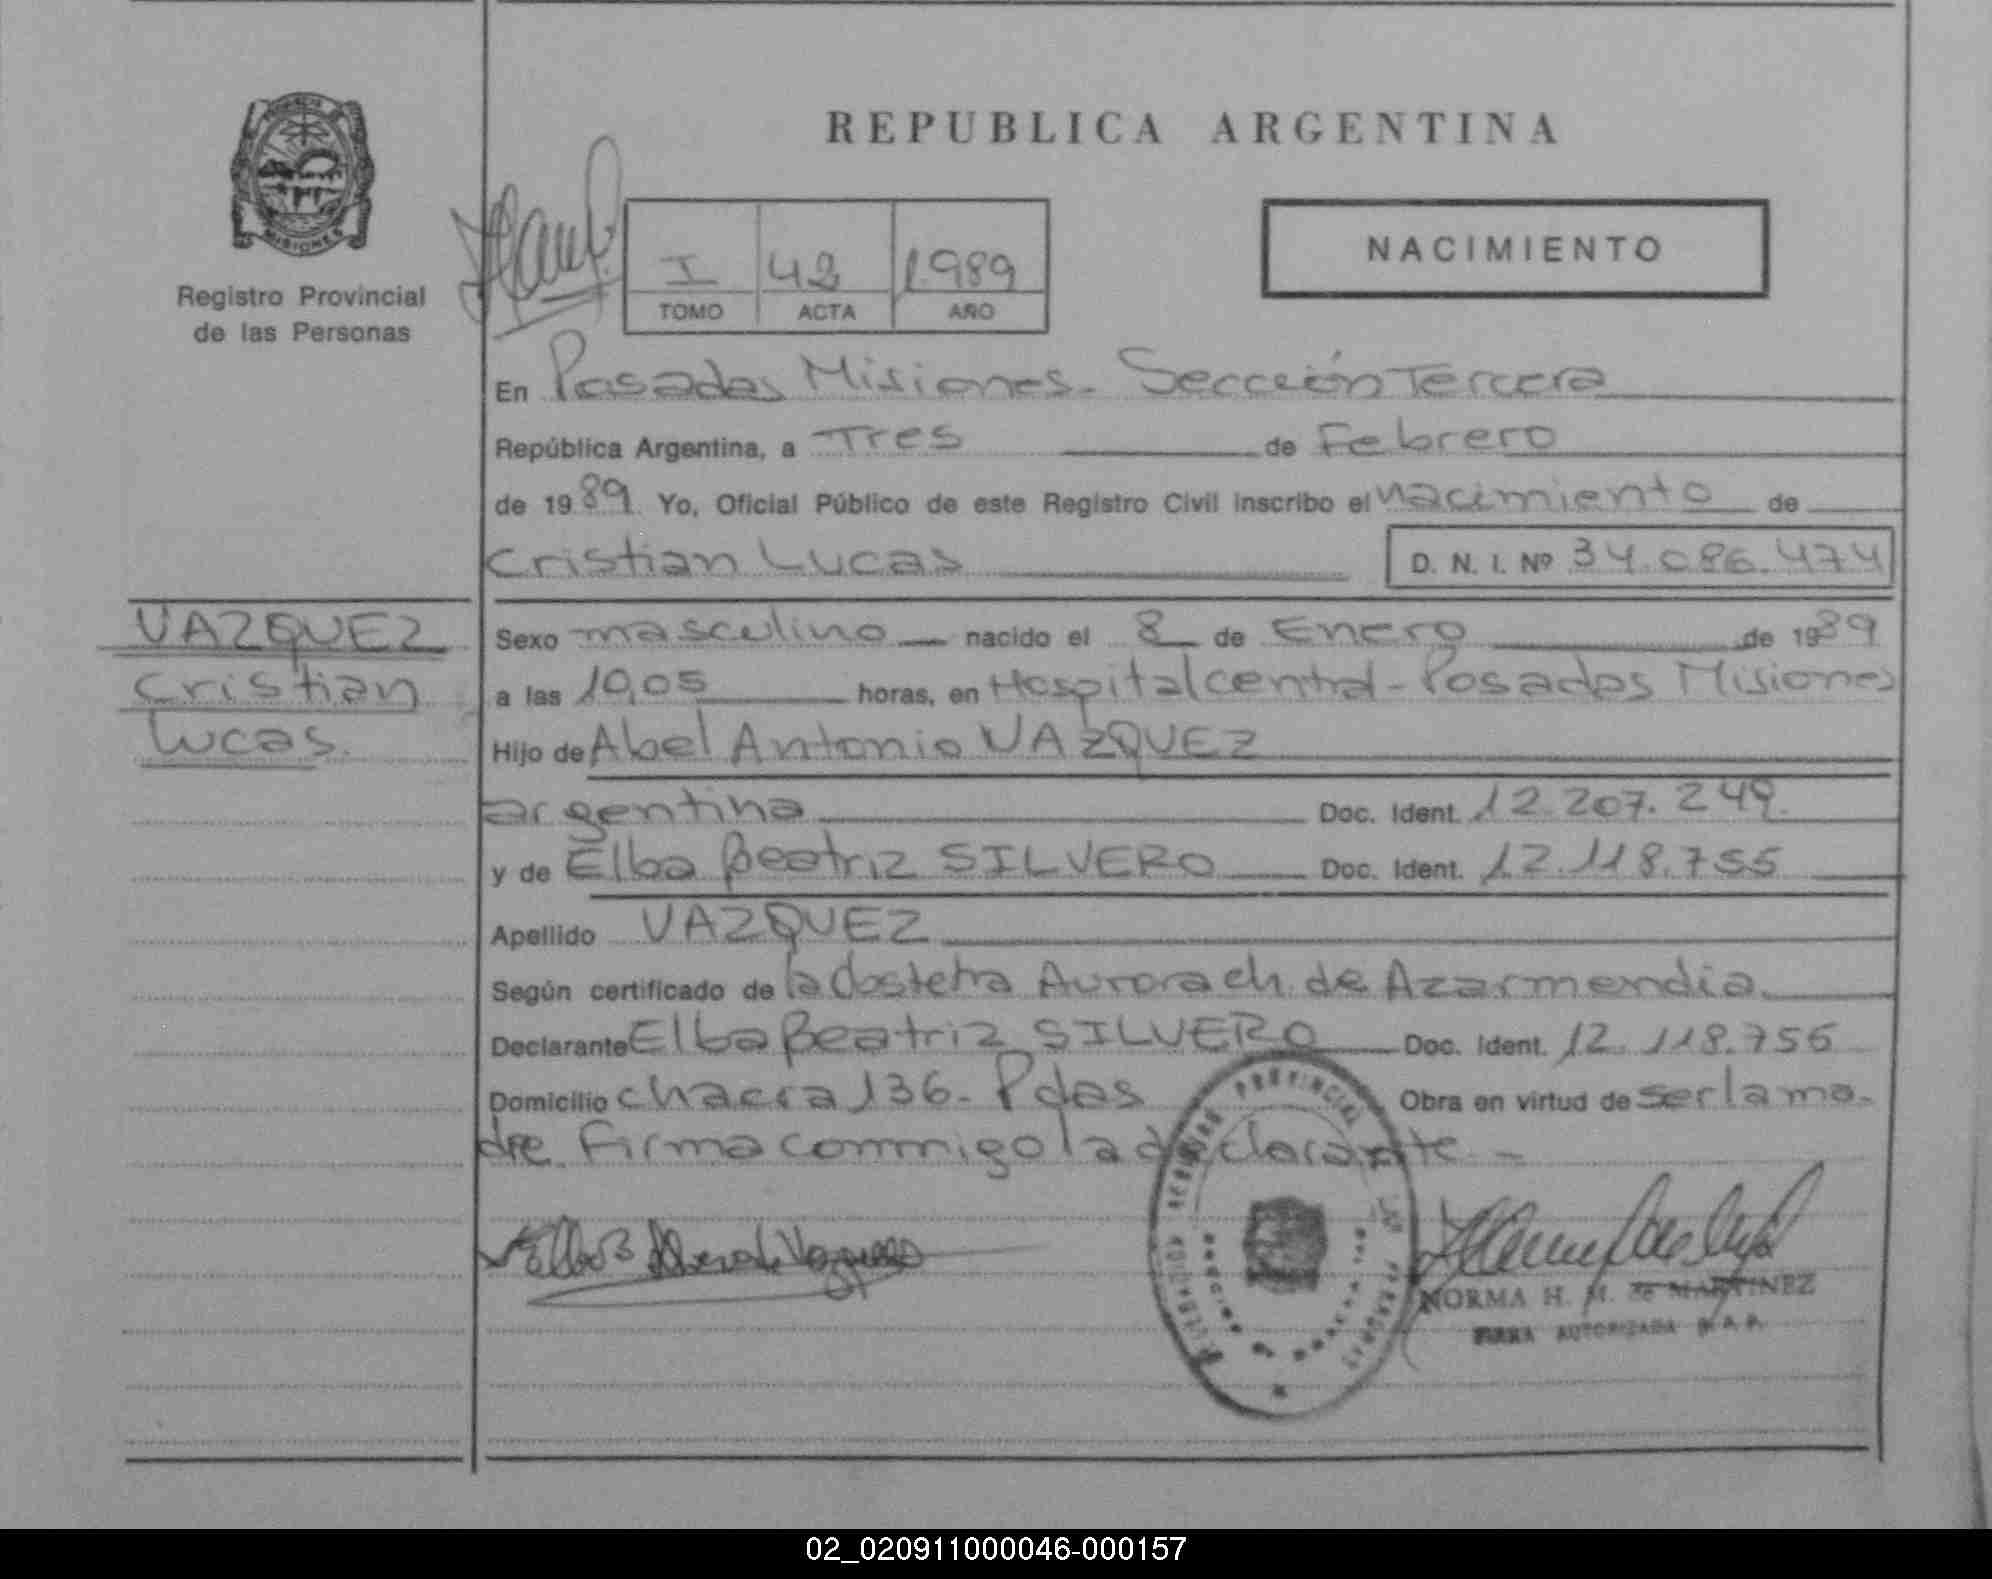 REPUBLICA ARGENTINA
PROVINCIA DE MISIONES
Registro Provincial
de las Personas
I 42 1989
TOMO ACTA AÑO
NACIMIENTO
En Posadas Misiones - Sección Tercera
República Argentina, a Tres de Febrero
de 1989 Yo, Oficial Público de este Registro Civil inscribo el nacimiento de
Cristian Lucas D. N. I. Nº 34.086.474
VAZQUEZ
Cristian
Lucas.
Sexo masculino nacido el 8 de Enero de 1989
a las 10,05 horas, en Hospital central - Posadas Misiones
Hijo de Abel Antonio VAZQUEZ
argentina Doc. Ident. 12.207.249.
y de Elba Beatriz SILVERO Doc. Ident. 12.118.755
Apellido VAZQUEZ
Según certificado de la Obstetra Aurora ch. de Azarmendia.
Declarante Elba Beatriz SILVERO Doc. Ident. 12.118.755
Domicilio chacra 136 - Pdas Obra en virtud de ser la ma-
dre. Firma conmigo la declarante -
Elba B Silvero de Vazquez
REGISTRO PROVINCIAL DE LAS PERSONAS
NORMA H. M. de MARTINEZ
FIRMA AUTORIZADA
02_020911000046-000157